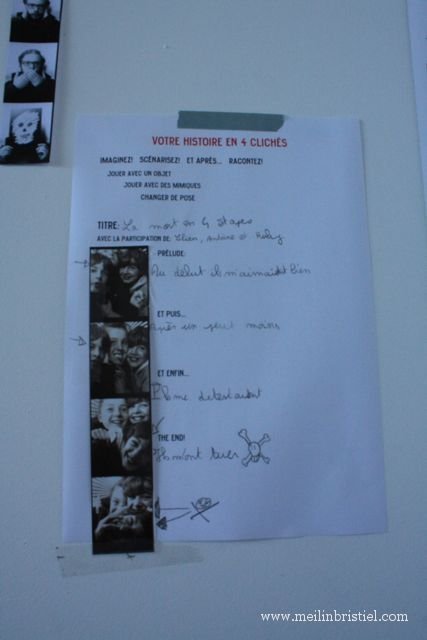 VOTRE HISTOIRE EN 4 CLICHÉS
IMAGINEZ! SCÉNARISEZ! ET APRÈS... RACONTEZ!
JOUER AVEC UN OBJET
JOUER AVEC DES MIMIQUES
CHANGER DE POSE
TITRE: La mort en 4 étapes
AVEC LA PARTICIPATION DE: Antoine et
PRÉLUDE:
Au début ils m'aimaient bien
ET PUIS...
après un peut moins
ET ENFIN...
Ils me detestaient
THE END!
Ils m'ont tuer
www.meilinbristiel.com